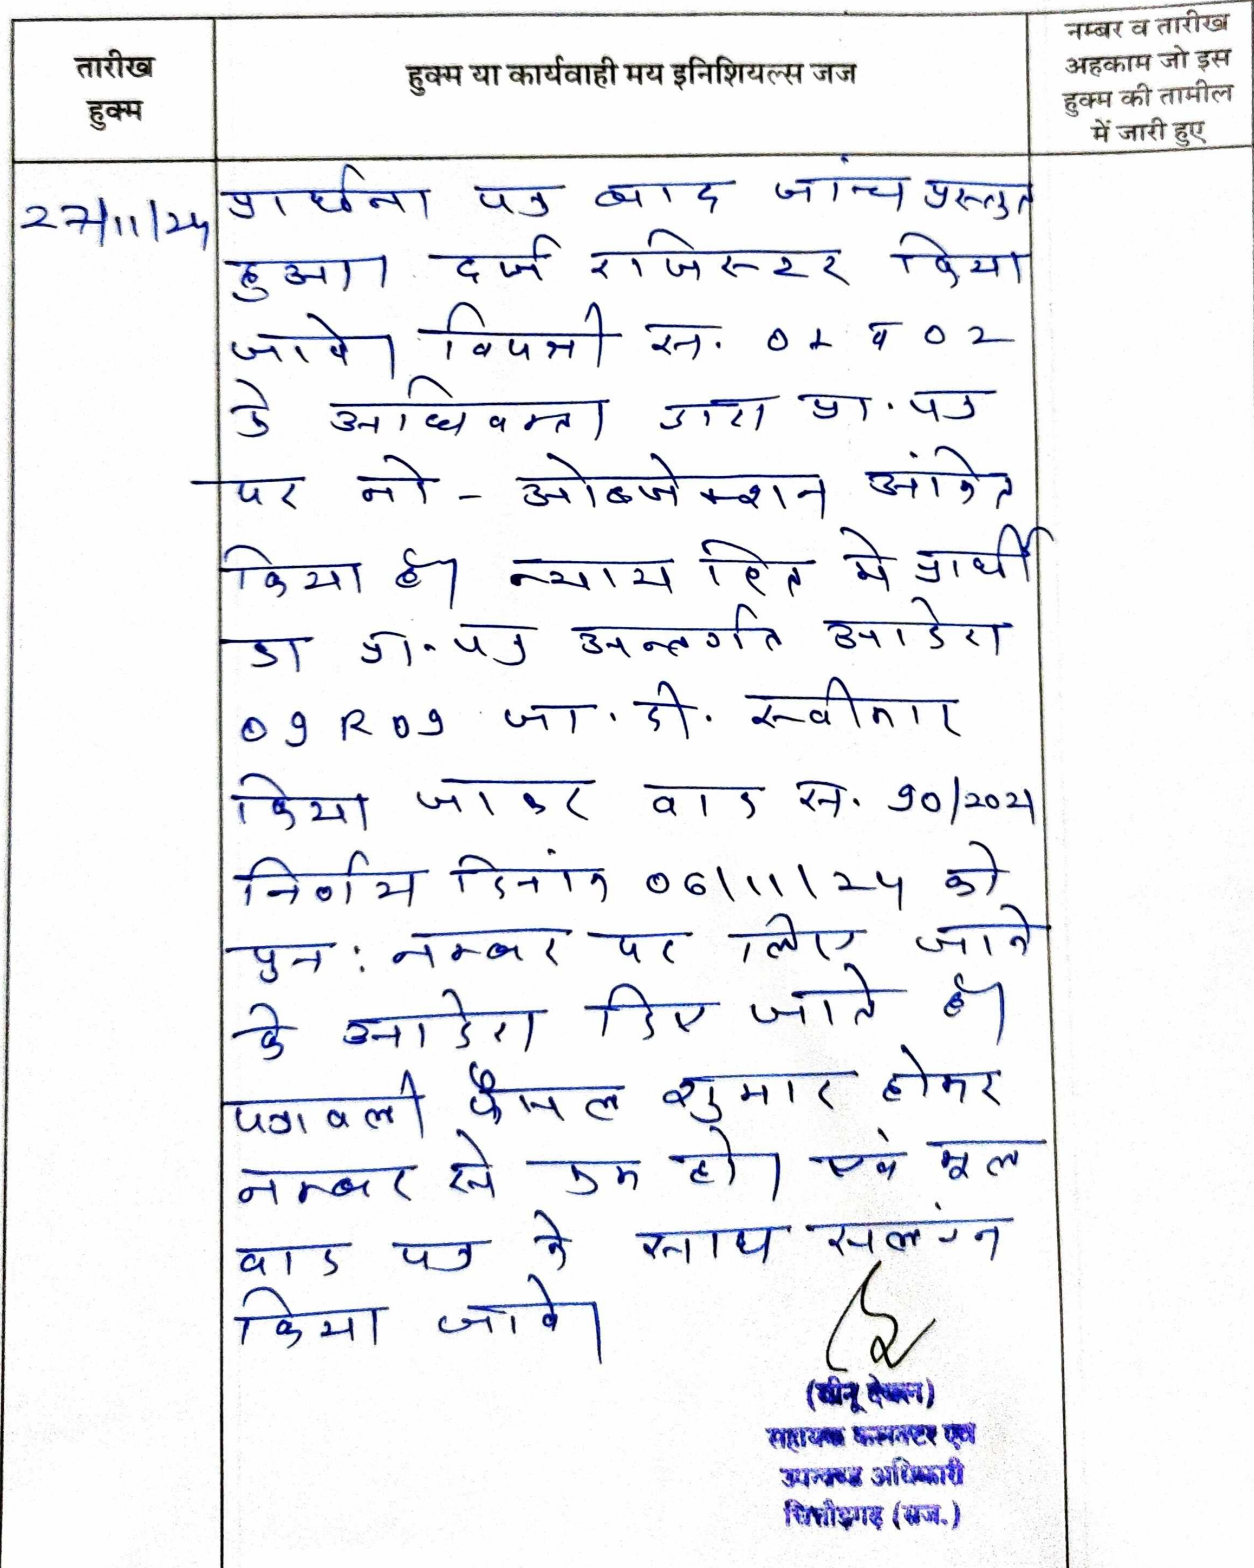 तारीख
हुक्म
हुक्म या कार्यवाही मय इनिशियल्स जज
नम्बर व तारीख
अहकाम जो इस
हुक्म की तामील
में जारी हुए
27/11/24
प्रार्थना पत्र बाद जांच प्रस्तुत
हुआ। दर्ज रजिस्टर किया
जावे। विपक्षी सं. 01 व 02
के अधिवक्ता द्वारा प्रा. पत्र
पर नो - ओब्जेक्शन अंकित
किया है। न्याय हित मे प्रार्थी
का प्रा. पत्र अन्तर्गत आदेश
09 R 09 जा. दी. स्वीकार
किया जाकर वाद स. 90/2021
निर्णय दिनांक 06/11/24 को
पुन: नम्बर पर लिए जाने
के आदेश दिए जाते है।
पत्रावली फैसल शुमार होकर
नम्बर से कम हो। एवं मूल
वाद पत्र के साथ सलंग्न
किया जावे।
सहायक कलक्टर एवं
उपखण्ड अधिकारी
चित्तौड़गढ़ (राज.)